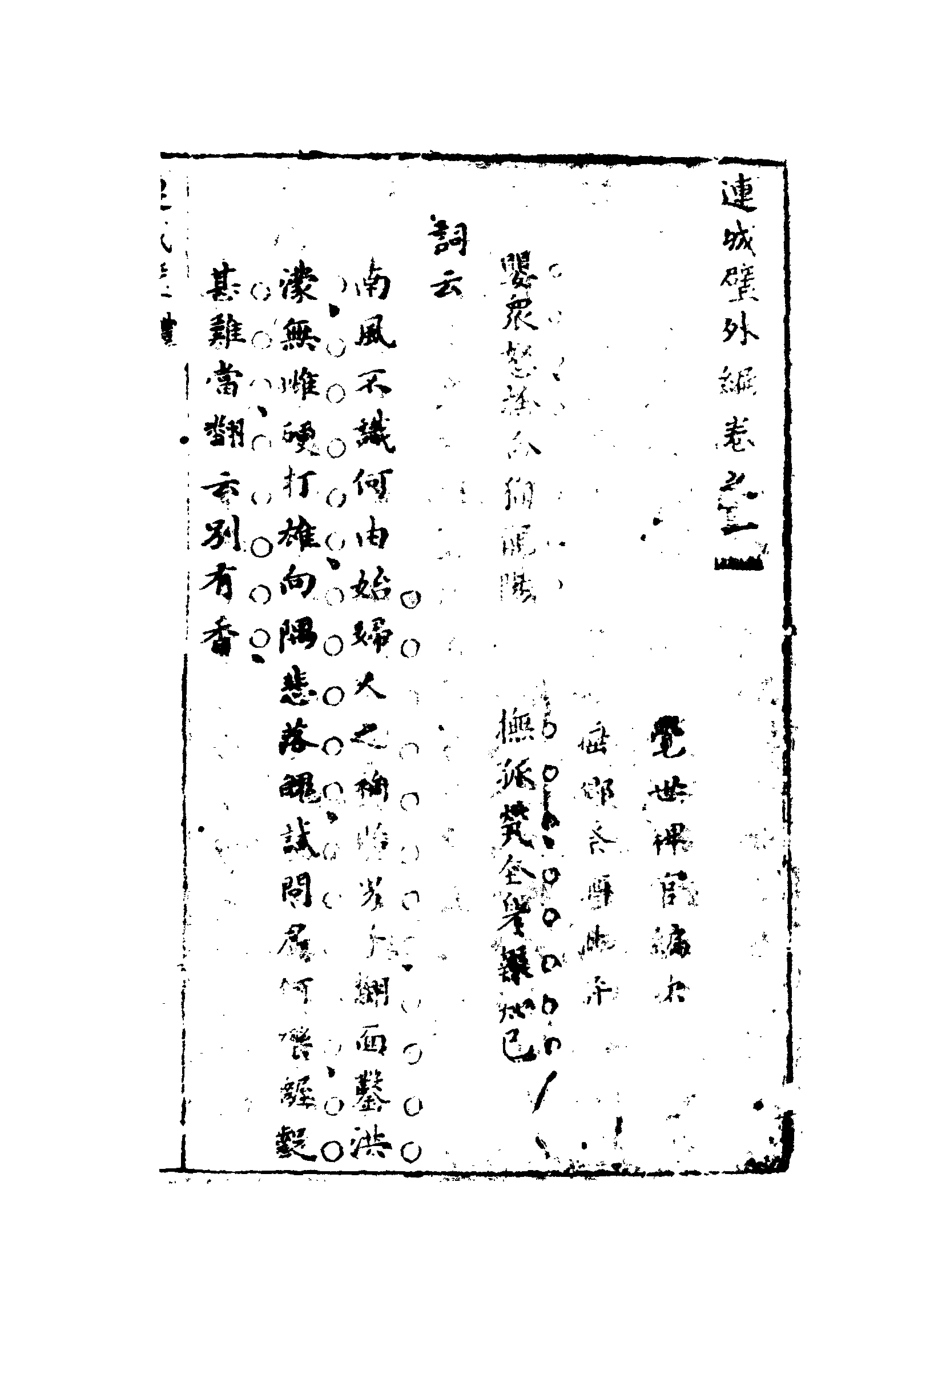 連城璧外編卷之
覺世稗官編次
睡鄉祭批評
嬰衆怒捨命殉龍陽
撫孤煢全身報知己
詞云
南風不識何由始婦人之禍貽男子翻面鑿洪
濛無雌硬打雄向隅悲落魄試問君何樂齷齪
甚難當翻云別有香